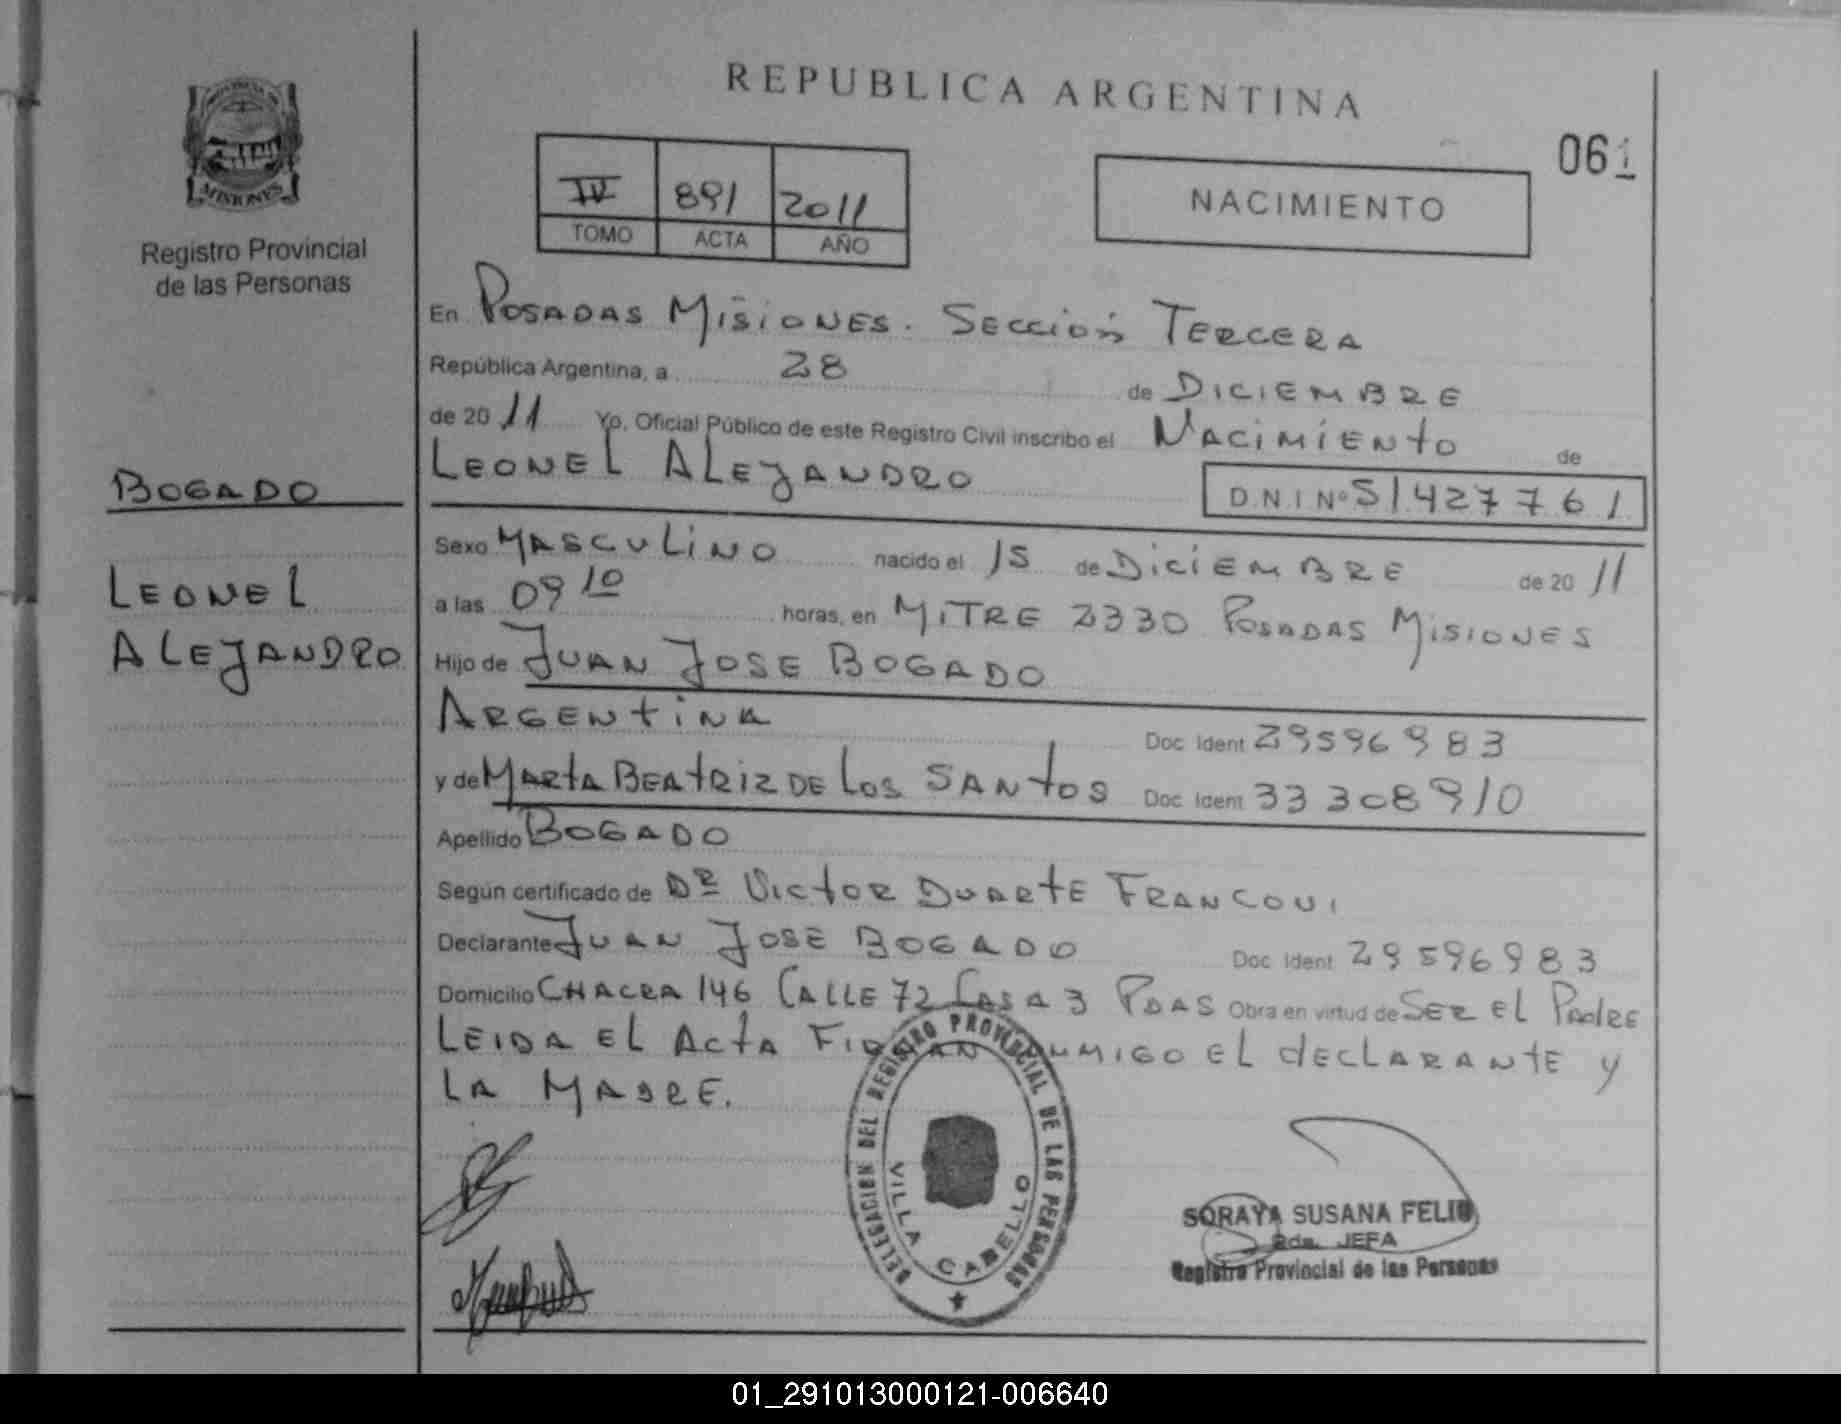 REPUBLICA ARGENTINA
061
IV 891 2011
TOMO ACTA AÑO
NACIMIENTO
MISIONES
Registro Provincial
de las Personas
BOGADO
LEONEL
ALEJANDRO
En POSADAS MISIONES. SECCION TERCERA
República Argentina, a 28 de DICIEMBRE
de 20 11 Yo, Oficial Público de este Registro Civil inscribo el NACIMIENTO de
LEONEL ALEJANDRO D.N.I Nº 51427761
Sexo MASCULINO nacido el 15 de DICIEMBRE de 20 11
a las 09 10 horas, en MITRE 2330 POSADAS MISIONES
Hijo de JUAN JOSE BOGADO
ARGENTINA Doc Ident 29596983
y de MARTA BEATRIZ DE LOS SANTOS Doc Ident 33308910
Apellido BOGADO
Según certificado de DR VICTOR DUARTE FRANCONI
Declarante JUAN JOSE BOGADO Doc Ident 29596983
Domicilio CHACRA 146 CALLE 72 CASA 3 PDAS Obra en virtud de SER EL PADRE
LEIDA EL ACTA FIRMAN CONMIGO EL DECLARANTE Y
LA MADRE.
DELEGACION DEL REGISTRO PROVINCIAL DE LAS PERSONAS
VILLA CABELLO
SORAYA SUSANA FELIU
2da. JEFA
Registro Provincial de las Personas
01_291013000121-006640